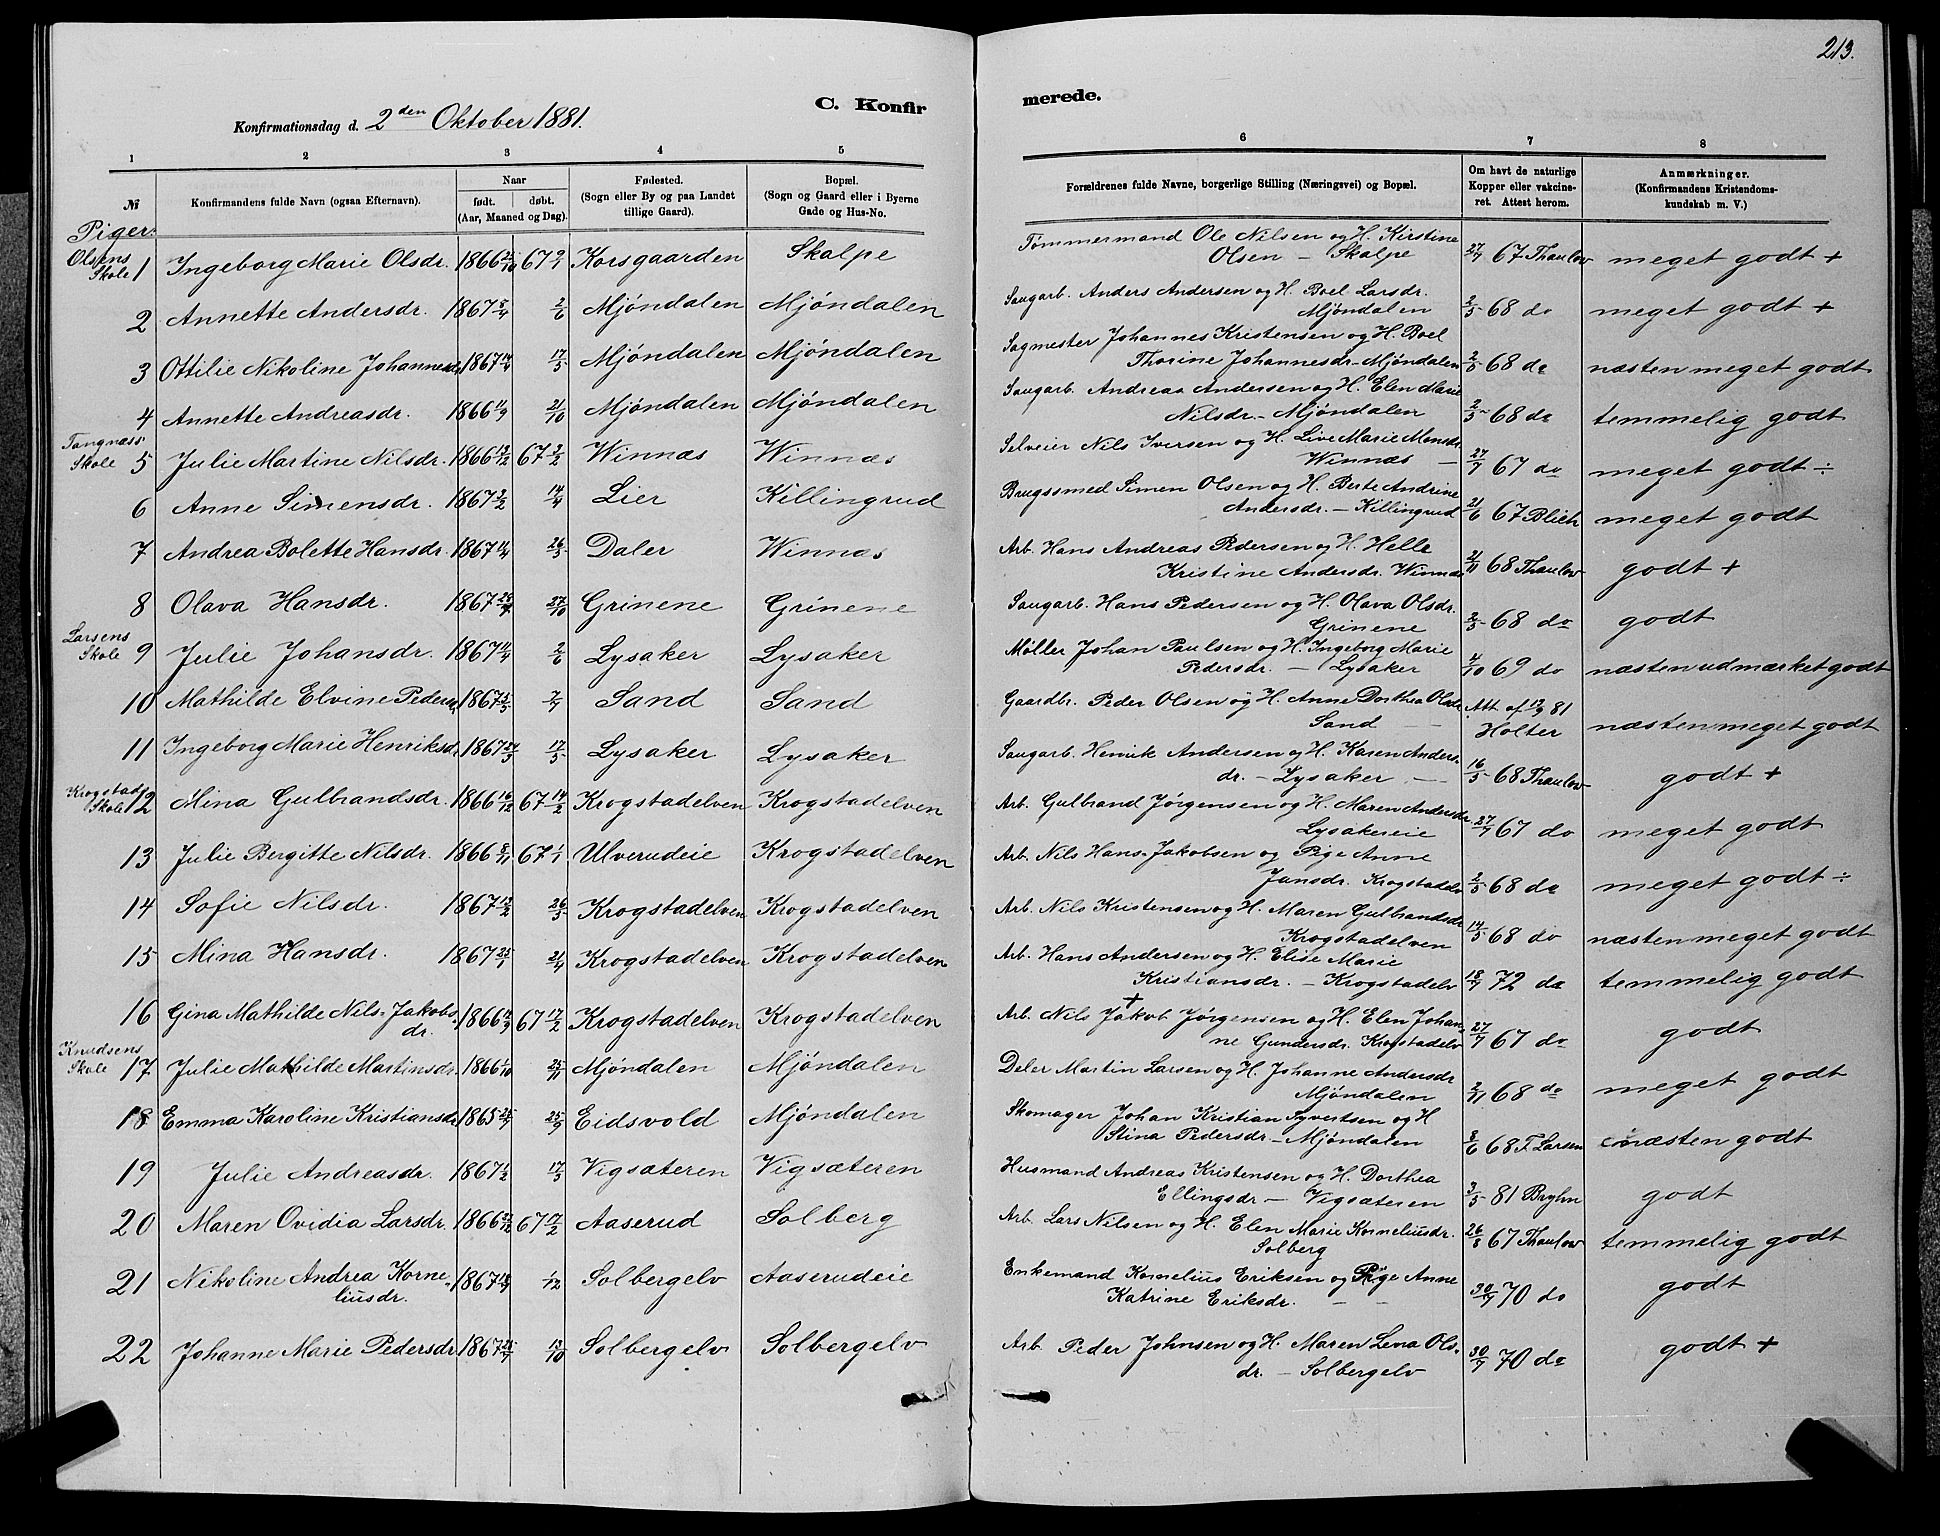 213.
C. Konfirmerede.
Konfirmationsdag d. 2den Oktober 1881.
1 2 3 4 5 6 7 8
№
Konfirmandens fulde Navn (ogsaa Efternavn).
Naar
født. døbt.
(Aar, Maaned og Dag).
Fødested.
(Sogn eller By og paa Landet
tillige Gaard).
Bopæl.
(Sogn og Gaard eller i Byerne
Gade og Hus-No.
Forældrenes fulde Navne, borgerlige Stilling (Næringsvei) og Bopæl.
Om havt de naturlige
Kopper eller vakcine-
ret. Attest herom.
Anmærkninger.
(Konfirmandens Kristendoms-
kundskab m. V.)
Piger:
Olsens
Skole 1 Ingeborg Marie Olsdr. 1866 25/10 67 9/1 Korsgaarden Skalpe Tømmermand Ole Nilsen og H. Kirstine
Olsen — Skalpe 27/7 67 Thaulow meget godt +
2 Annette Andersdr. 1867 8/4 2/6 Mjöndalen Mjöndalen Saugarb. Anders Andersen og H. Boel Larsdr.
Mjöndalen 2/5 68 do meget godt +
3 Ottilie Nikoline Johannesdr. 1867 14/4 17/5 Mjöndalen Mjöndalen Sagmester Johannes Kristensen og H. Boel
Thorine Johannesdr. - Mjöndalen 2/5 68 do næsten meget godt
4 Annette Andreasdr. 1866 11/9 21/10 Mjöndalen Mjöndalen Saugarb. Andreas Andersen og H. Elen Marie
Nilsdr. - Mjöndalen 2/5 68 do temmelig godt
Tangnæss
Skole 5 Julie Martine Nilsdr. 1866 12/12 67 3/2 Winnæs Winnæs Selveier Nils Iversen og H. Live Marie Monsdr.
Winnæs — 27/7 67 do meget godt ÷
6 Anne Simensdr. 1867 2/2 14/4 Lier Killingrud Brugssmed Simen Olsen og H. Berte Andrine
Andersdr. — Killingrud 21/6 67 Blich meget godt
7 Andrea Bolette Hansdr. 1867 11/4 26/5 Daler Winnæs Arb. Hans Andreas Pedersen og H. Helle
Kristine Andersdr. Winnæs 21/11 68 Thaulow godt +
8 Olava Hansdr. 1867 28/7 27/10 Grinene Grinene Saugarb. Hans Pedersen og H. Olava Olsdr.
Grinene 2/5 68 do godt
Larsens
Skole 9 Julie Johansdr. 1867 11/4 2/6 Lysaker Lysaker Møller Johan Paulsen og H. Ingeborg Marie
Pedersdr. — Lysaker 4/10 69 do næsten udmærket godt
10 Mathilde Elvine Pedersdr. 1867 15/5 7/7 Sand Sand Gaardbr. Peder Olsen og H. Anne Dorthea Olsdr.
Sand — Att. af 12/9 81
Holter næsten meget godt
11 Ingeborg Marie Henriksdr. 1867 24/3 17/5 Lysaker Lysaker Saugarb. Henrik Andersen og H. Karen Anders-
dr. — Lysaker — 16/5 68 Thaulow godt +
Krogstad
Skole 12 Mina Gulbrandsdr. 1866 16/12 67 14/2 Krogstadelven Krogstadelven Arb. Gulbrand Jørgensen og H. Maren Andersdr.
Lysakereie 27/7 67 do meget godt
13 Julie Bergitte Nilsdr. 1866 8/11 67 1/1 Ulverudeie Krogstadelven Arb. Nils Hans-Jakobsen og Pige Anne
Jansdr. Krogstadelv 2/5 68 do meget godt ÷
14 Sofie Nilsdr. 1867 12/2 26/5 Krogstadelven Krogstadelven Arb. Nils Kristensen og H. Maren Gulbrandsdr
Krogstadelven 14/5 68 do næsten meget godt
15 Mina Hansdr. 1867 25/1 21/4 Krogstadelven Krogstadelven Arb. Hans Andersen og H. Elise Marie
Kristiansdr. — Krogstadelv 18/7 72 do temmelig godt
16 Gina Mathilde Nils-Jakobs-
dr. 1866 12/9 67 17/2 Krogstadelven Krogstadelven Arb. Nils Jakob Jørgensen og H. Elen Johan-
ne Gundersdr. Krogstadelv 27/7 67 do godt
Knudsens
Skole 17 Julie Mathilde Martinsdr. 1866 1/10 25/11 Mjöndalen Mjöndalen Deler Martin Larsen og H. Johanne Andersdr
Mjöndalen 2/7 68 do meget godt
18 Emma Karoline Kristiansdr 1865 25/7 25/9 Eidsvold Mjöndalen Skomager Johan Kristian Syvertsen og H
Stina Pedersdr - Mjöndalen 8/6 68 F. Larsen næsten godt
19 Julie Andreasdr. 1867 1/2 17/5 Vigsæteren Vigsæteren Husmand Andreas Kristensen og H. Dorthea
Ellingsdr — Vigsæteren 3/5 81 Bryhn godt
20 Maren Ovidia Larsdr. 1866 22/12 67 17/2 Aaserud Solberg Arb. Lars Nilsen og H. Elen Marie Korneliusdr.
Solberg 26/8 67 Thaulow temmelig godt
21 Nikoline Andrea Korne-
liusdr. 1867 18/9 1/12 Solbergelv Aaserudeie Enkemand Kornelius Eriksen og Pige Anne
Katrine Eriksdr. — — 30/7 70 do godt
22 Johanne Marie Pedersdr 1867 25/7 13/10 Solbergelv Solbergelv Arb. Peder Johnsen og H. Maren Lena Ols-
dr. — Solbergelv 30/7 70 do godt +